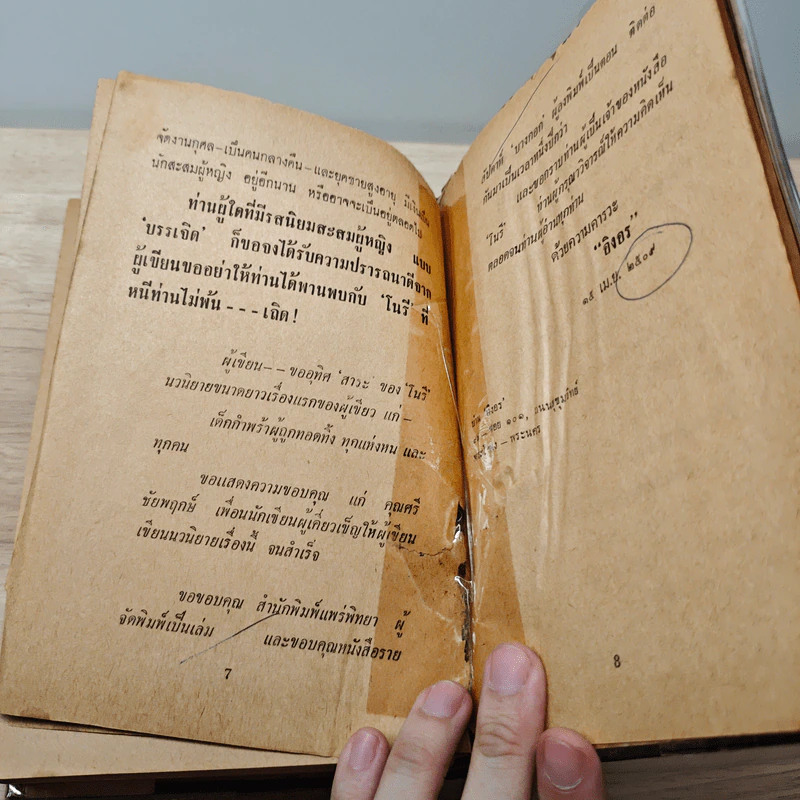 จัดงานกุศล-เป็นคนกลางคืน-และยุคชายสูงอายุ
นักสะสมผู้หญิง อยู่อีกนาน หรืออาจจะเป็นอยู่ตลอดไป
ท่านผู้ใดที่มีรสนิยมสะสมผู้หญิง แบบ
‘บรรเจิด’ ก็ขอจงได้รับความปรารถนาดีจาก
ผู้เขียนขออย่าให้ท่านได้พานพบกับ ‘โนรี’ ที่
หนีท่านไม่พ้น---เถิด!
ผู้เขียน--ขออุทิศ ‘สาระ’ ของ ‘โนรี’
นวนิยายขนาดยาวเรื่องแรกของผู้เขียว แก่-
เด็กกำพร้าผู้ถูกทอดทิ้ง ทุกแห่งหน และ
ทุกคน
ขอแสดงความขอบคุณ แก่ คุณศรี
ชัยพฤกษ์ เพื่อนนักเขียนผู้เคี่ยวเข็ญให้ผู้เขียน
เขียนนวนิยายเรื่องนี้ จนสำเร็จ
ขอขอบคุณ สำนักพิมพ์แพร่พิทยา ผู้
จัดพิมพ์เป็นเล่ม และขอบคุณหนังสือราย
7
สัปดาห์ ‘บางกอก’ ผู้ลงพิมพ์เป็นตอน ติดต่อ
กันมาเป็นเวลาหนึ่งปีกว่า
และขอกราบท่านผู้เป็นเจ้าของหนังสือ
‘โนรี’ ท่านผู้กรุณาวิจารณ์ให้ความคิดเห็น
ตลอดจนท่านผู้อ่านทุกท่าน
ด้วยความคารวะ
“อิงอร”
๑๕ เม.ย. ๒๕๐๙
‘อิงอร’
ซอย ๑๐๑, ถนนสุขุมวิทย์
- พระนคร
8